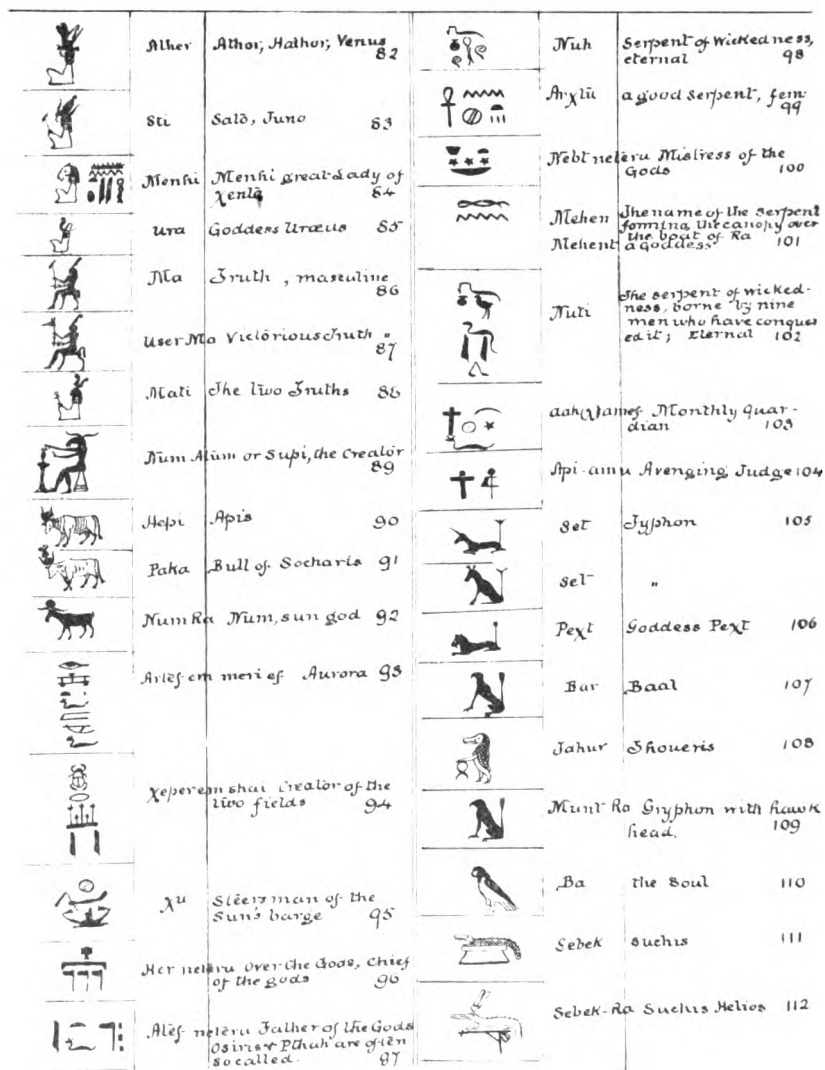 Alher Athor, Hathor, Venus
82
Sti Satō, Juno 83
Menhi Menhi great Lady of
χentō 84
Ura Goddess Uræus 85
Ma Truth, masculine
86
User Ma Victōrious Truth "
87
Mati The two Truths 88
Num Atūm or Supi, the Creatōr
89
Hepi Apis 90
Paka Bull of Socharis 91
Num Ra Num, sun god 92
Artēf em meri ef Aurora 93
χeperem shai Creatōr of the
two fields 94
χu Stēersman of the
Sun's barge 95
Her netēru Over the Gods, Chief
of the gods 96
Atēf netēru Father of the Gods
Osiris & Pthah are oftēn
so called. 97
Nuh Serpent of Wickedness,
eternal 98
Arχtū a good serpent, fem:
99
Nebt netēru Mistress of the
Gods 100
Mehen The name of the serpent
forming the canopy over
the boat of Ra
Mehent a Goddess 101
Nuti The serpent of wicked-
ness, borne by nine
men who have conquer
ed it; Eternal 102
aah(χ)ames Monthly Guar-
dian 103
Api-amu Avenging Judge 104
Set Typhon 105
Set "
Peχt Goddess Peχt 106
Bar Baal 107
Tahur Thoueris 108
Munt-Ra Gryphon with hawk
head. 109
Ba the Soul 110
Sebek Suchis 111
Sebek-Ra Suchis Helios 112